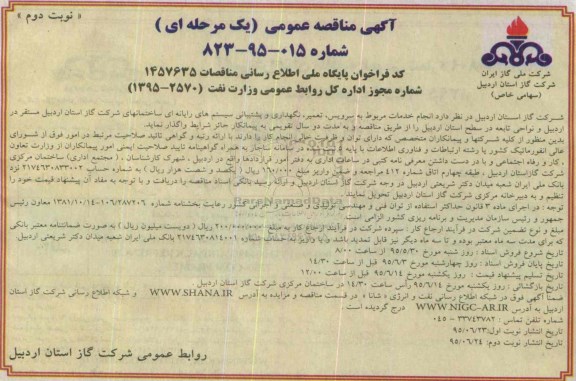 « نوبت دوم »
آگهی مناقصه عمومی (یک مرحله ای )
شماره ۰۱۵-۹۵-۸۲۳
کد فراخوان پایگاه ملی اطلاع رسانی مناقصات ۱۴۵۷۶۳۵
شماره مجوز اداره کل روابط عمومی وزارت نفت (۲۵۷۰-۱۳۹۵)
شرکت ملی گاز ایران
شرکت گاز استان اردبیل
(سهامی خاص)
شرکت گاز استان اردبیل در نظر دارد انجام خدمات مربوط به سرویس، تعمیر، نگهداری و پشتیبانی سیستم های رایانه ای ساختمانهای شرکت گاز استان اردبیل مستقر در
اردبیل و نواحی تابعه در سطح استان اردبیل را از طریق مناقصه و به مدت در سال تقویمی به پیمانکار حائز شرایط واگذار نماید.
بدین منظور از کلیه شرکتها و پیمانکاران متخصص که دارای توان و ظرفیت خالی انجام کار با ارائه رتبه و گواهی تائید صلاحیت مرتبط در امور فوق از شورای
عالی انفورماتیک کشور یا رشته ارتباطات و فناوری اطلاعات با پایه در سامانه ساجار به همراه گواهینامه تایید صلاحیت ایمنی امور پیمانکاران از وزارت تعاون
، کار و رفاه اجتماعی و با در دست داشتن معرفی نامه کتبی در ساعات اداری به دفتر امور قراردادها واقع در اردبیل ، شهرک کارشناسان ، (مجتمع اداری) ساختمان مرکزی
شرکت گاز استان اردبیل ، طبقه چهارم اتاق شماره ۴۱۲ مراجعه و ضمن واریز مبلغ ۱۶۰/۰۰۰ ریال (یکصد و شصت هزار ریال ) به شماره حساب ۲۱۷۴۶۳۰۸۳۳۰۰۲ نزد
بانک ملی ایران شعبه میدان دکتر شریعتی اردبیل در وجه شرکت گاز استان اردبیل و ارائه رسید بانکی اسناد مناقصه را دریافت و با توجه به مفاد آن پیشنهاد قیمت خود را
تنظیم و به دبیرخانه مرکزی شرکت گاز استان اردبیل تحویل نمایند.
توجه : در اجرای ماده ۳ قانون حداکثر استفاده از توان فنی و مهندسی رعایت بخشنامه شماره ۱۰۶/۲۸۷۲۰۶-۱۳۸۱/۱۰/۱۴ معاون رئیس
جمهور و رئیس سازمان مدیریت و برنامه ریزی کشور الزامی است.
مبلغ و نوع تضمین شرکت در فرآیند ارجاع کار : سپرده شرکت در فرآیند ارجاع کار به مبلغ ۲۰۰/۰۰۰/۰۰۰ ریال ( دویست میلیون ریال ) به صورت ضمانتنامه معتبر بانکی
که برای مدت سه ماه معتبر بوده و تا سه ماه دیگر نیز قابل تمدید باشد و یا واریز به حساب شماره ۲۱۷۴۶۳۰۸۱۴۰۰۱ بانک ملی ایران شعبه میدان دکتر شریعتی اردبیل.
تاریخ شروع فروش اسناد : روز شنبه مورخ ۹۵/۵/۳۰ از ساعت ۸/۰۰
تاریخ پایان فروش اسناد : روز چهارشنبه مورخ ۹۵/۶/۳ قبل از ساعت ۱۴/۳۰
تاریخ تسلیم پیشنهاد قیمت : روز یکشنبه مورخ ۹۵/۶/۱۴ قبل از ساعت ۱۲/۰۰
تاریخ بازگشائی : روز یکشنبه مورخ ۹۵/۶/۱۴ رأس ساعت ۱۴/۳۰ در ساختمان مرکزی شرکت گاز استان اردبیل
ضمناً آگهی فوق در شبکه اطلاع رسانی نفت و انرژی ( شانا ) در قسمت مناقصه و مزایده به آدرس WWW.SHANA.IR و شبکه اطلاع رسانی شرکت گاز استان
اردبیل به آدرس WWW.NIGC-AR.IR درج گردیده است.
شماره تلفن تماس : ۳۳۷۴۳۷۸۲ - ۰۴۵
تاریخ انتشار نوبت اول: ۹۵/۰۶/۲۳
تاریخ انتشار نوبت دوم: ۹۵/۰۶/۲۴
روابط عمومی شرکت گاز استان اردبیل